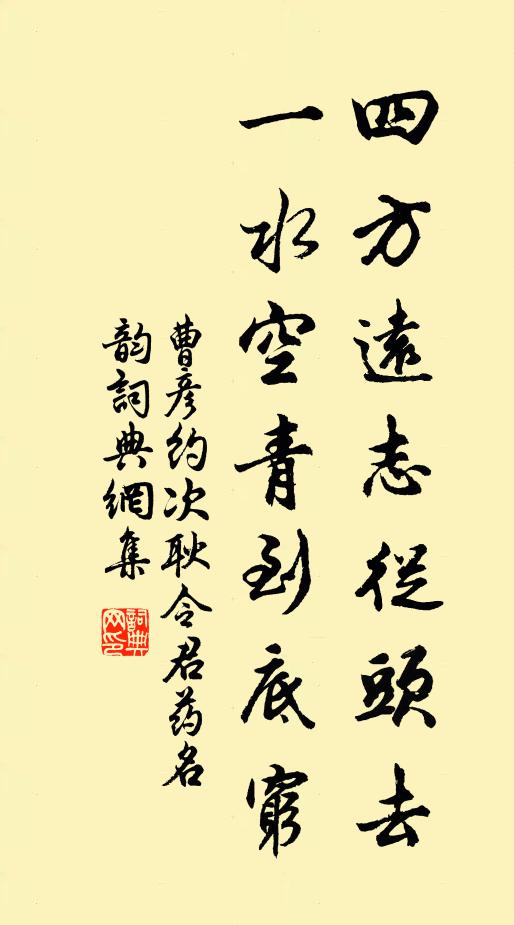 四方遠志從頭去
一水空青到底窮
曹彦約次耿令君药名
韵詞典網集
詞典
网印